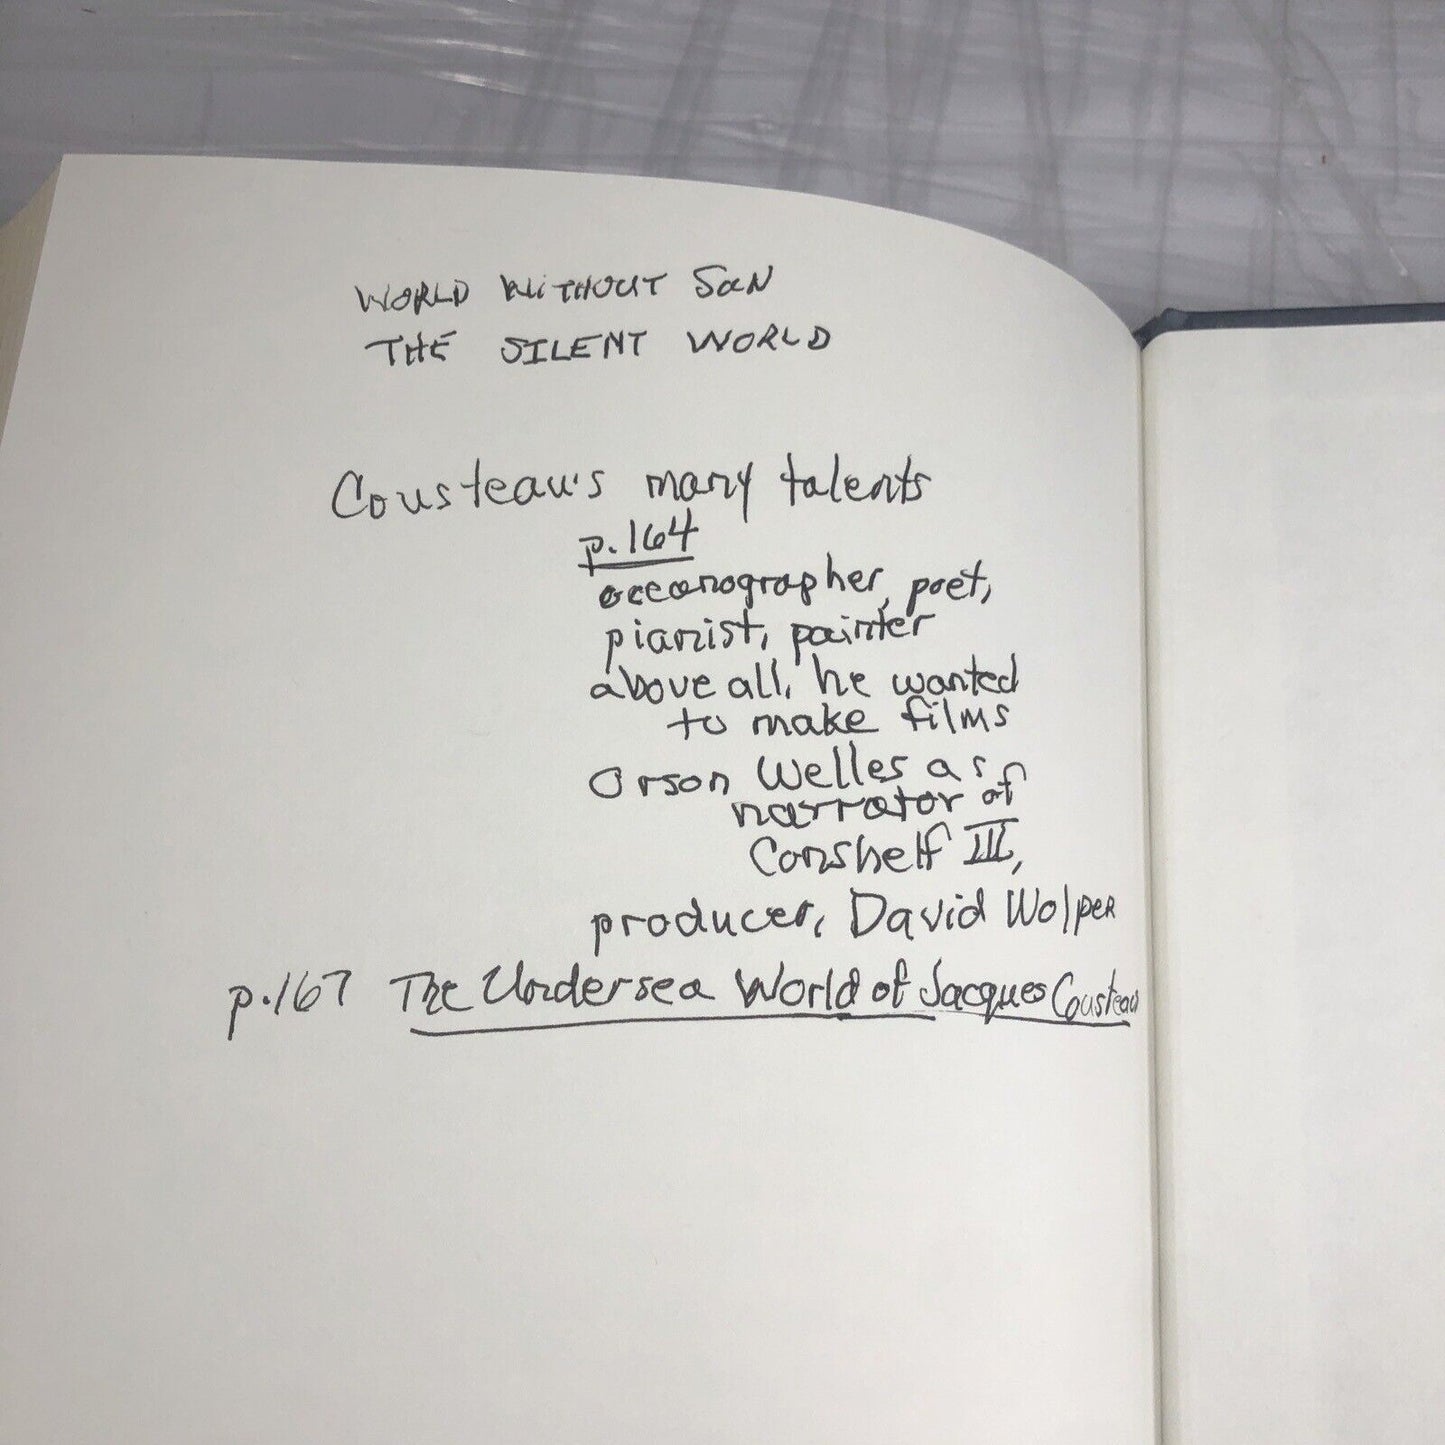 WORLD WITHOUT SUN
THE SILENT WORLD
Cousteau's many talents
p.164
oceanographer, poet,
pianist, painter
above all, he wanted
to make films
Orson Welles as
narrator of
Conshelf III,
producer, David Wolper
p.167 The Undersea World of Jacques Cousteau